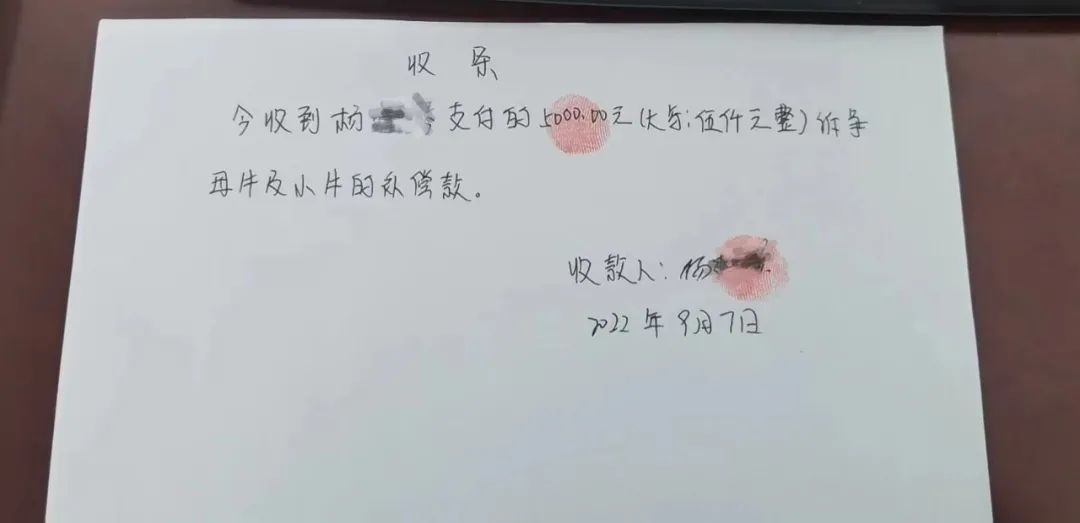 收条
今收到杨 支付的5000.00元(大写:伍仟元整)作为
母牛及小牛的补偿款。
收款人:杨
2022年9月7日